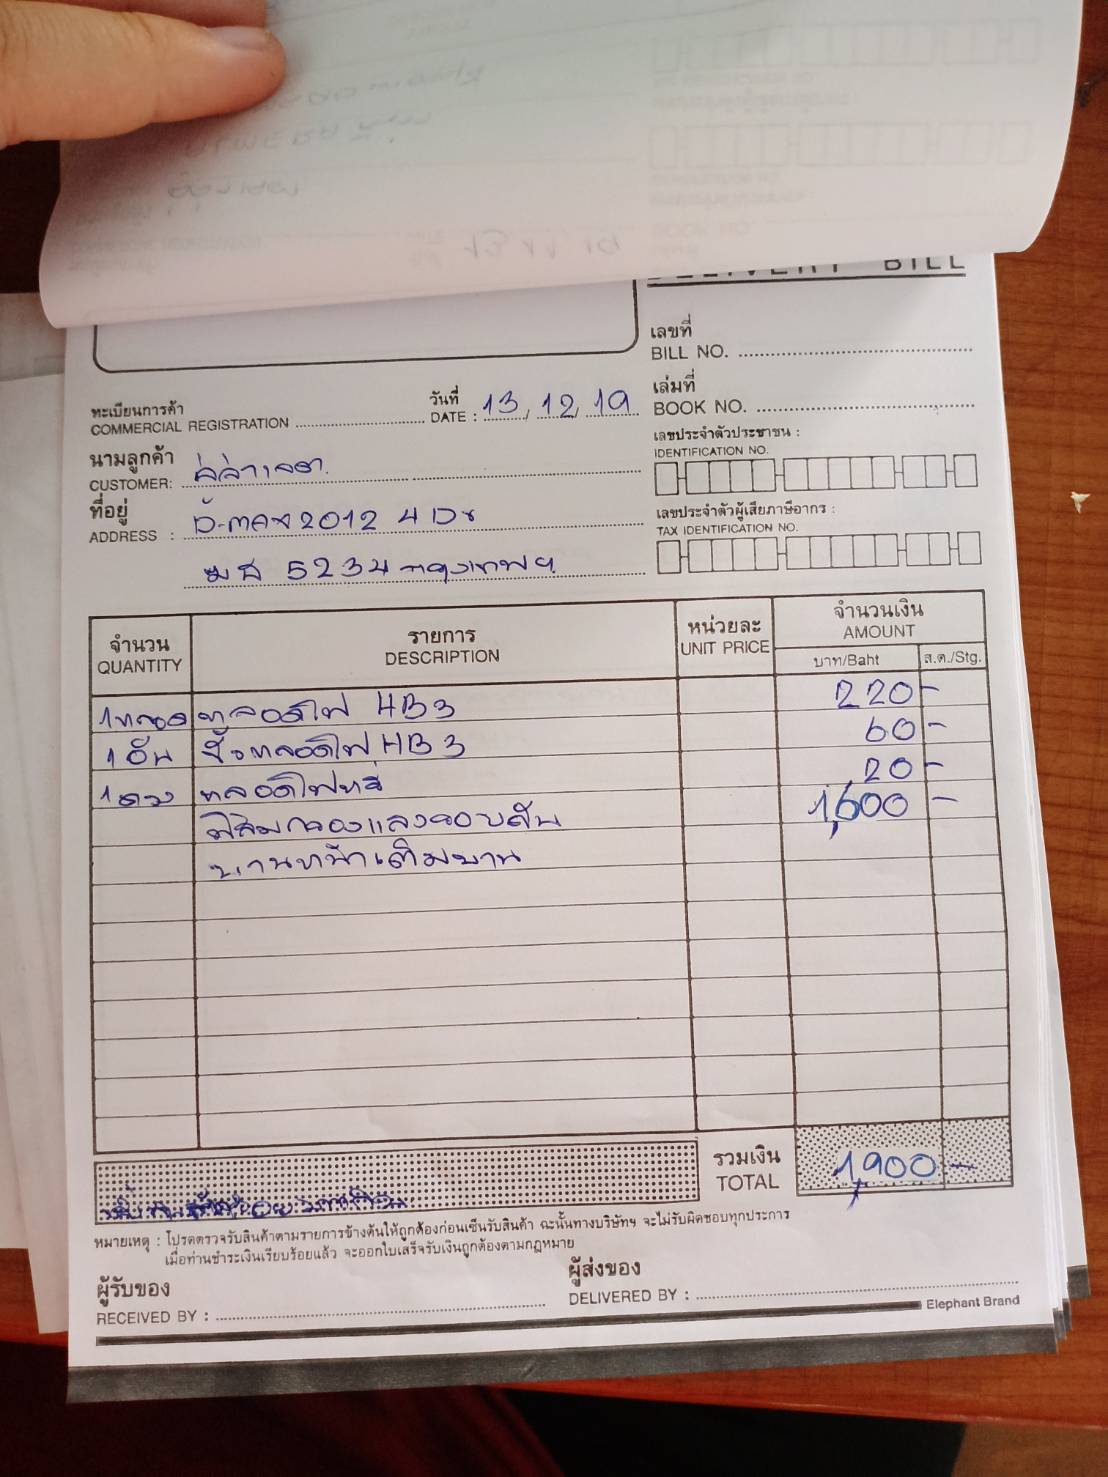 DELIVERY BILL
เลขที่
BILL NO.
ทะเบียนการค้า
COMMERCIAL REGISTRATION
วันที่
DATE : 13, 12, 19
เล่มที่
BOOK NO.
นามลูกค้า
CUSTOMER:
เลขประจำตัวประชาชน :
IDENTIFICATION NO.
ที่อยู่
ADDRESS : 2012 4 Dr
5234 กรุงเทพฯ
เลขประจำตัวผู้เสียภาษีอากร :
TAX IDENTIFICATION NO.
จำนวน
QUANTITY
รายการ
DESCRIPTION
หน่วยละ
UNIT PRICE
จำนวนเงิน
AMOUNT
บาท/Baht ส.ต./Stg.
1 หลอด หลอดไฟ HB3 220 -
1 อัน ขั้วหลอดไฟ HB3 60 -
1 ดวง หลอดไฟหรี่ 20 -
ฟิล์มกรองแสงรอบคัน 1,600 -
บานหน้าเต็มบาน
รวมเงิน
TOTAL 1,900 -
หมายเหตุ : โปรดตรวจรับสินค้าตามรายการข้างต้นให้ถูกต้องก่อนเซ็นรับสินค้า ฉะนั้นทางบริษัทฯ จะไม่รับผิดชอบทุกประการ
เมื่อท่านชำระเงินเรียบร้อยแล้ว จะออกใบเสร็จรับเงินถูกต้องตามกฎหมาย
ผู้รับของ
RECEIVED BY :
ผู้ส่งของ
DELIVERED BY :
Elephant Brand